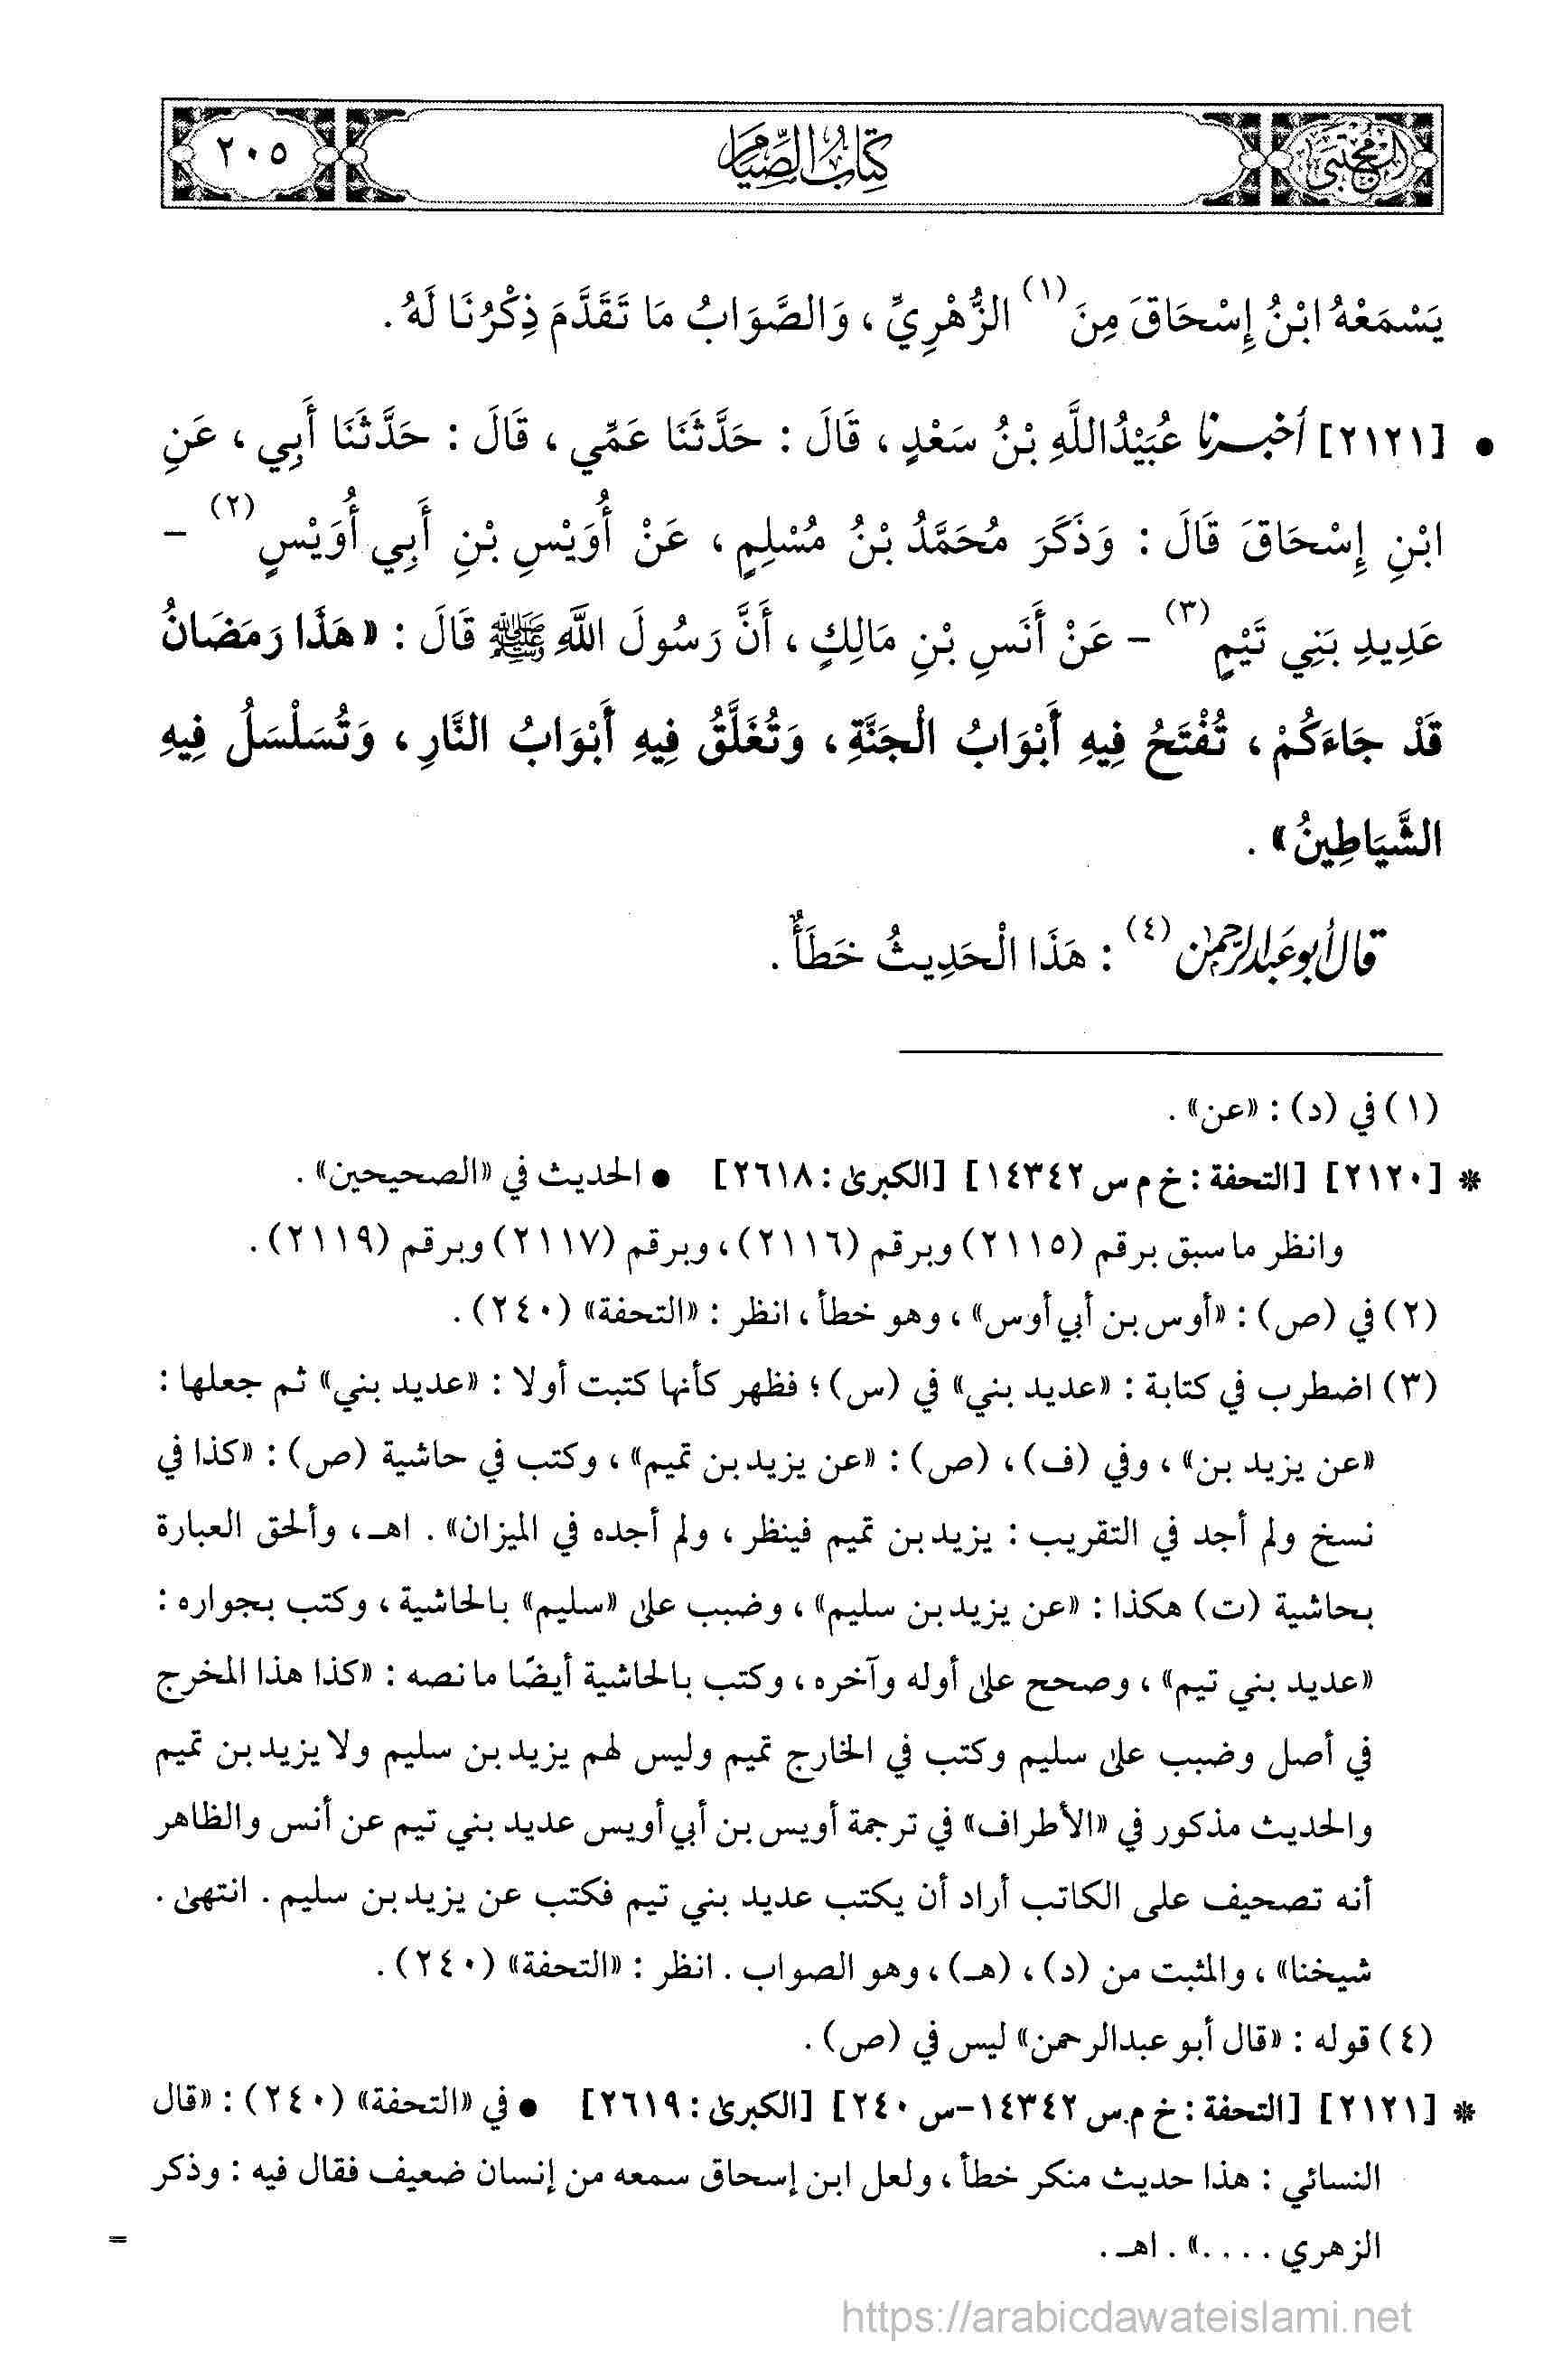 المجتبى
كتاب الصيام
٢٠٥
يَسْمَعْهُ ابْنُ إِسْحَاقَ مِنَ(١) الزُّهْرِيِّ، وَالصَّوَابُ مَا تَقَدَّمَ ذِكْرُنَا لَهُ.
• [٢١٢١] أخبرنا عُبَيْدُاللَّهِ بْنُ سَعْدٍ، قَالَ: حَدَّثَنَا عَمِّي، قَالَ: حَدَّثَنَا أَبِي، عَنِ
ابْنِ إِسْحَاقَ قَالَ: وَذَكَرَ مُحَمَّدُ بْنُ مُسْلِمٍ، عَنْ أُوَيْسِ بْنِ أَبِي أُوَيْسٍ(٢) -
عَدِيدِ بَنِي تَيْمٍ(٣) - عَنْ أَنَسِ بْنِ مَالِكٍ، أَنَّ رَسُولَ اللَّهِ ﷺ قَالَ: «هَذَا رَمَضَانُ
قَدْ جَاءَكُمْ، تُفْتَحُ فِيهِ أَبْوَابُ الْجَنَّةِ، وَتُغَلَّقُ فِيهِ أَبْوَابُ النَّارِ، وَتُسَلْسَلُ فِيهِ
الشَّيَاطِينُ».
قال أبو عبد الرحمن(٤): هَذَا الْحَدِيثُ خَطَأٌ.
(١) في (د): «عن».
* [٢١٢٠] [التحفة: خ م س ١٤٣٤٢] [الكبرى: ٢٦١٨] • الحديث في «الصحيحين».
وانظر ما سبق برقم (٢١١٥) وبرقم (٢١١٦)، وبرقم (٢١١٧) وبرقم (٢١١٩).
(٢) في (ص): «أوس بن أبي أوس»، وهو خطأ، انظر: «التحفة» (٢٤٠).
(٣) اضطرب في كتابة: «عديد بني» في (س)؛ فظهر كأنها كتبت أولا: «عديد بني» ثم جعلها:
«عن يزيد بن»، وفي (ف)، (ص): «عن يزيد بن تميم»، وكتب في حاشية (ص): «كذا في
نسخ ولم أجد في التقريب: يزيد بن تميم فينظر، ولم أجده في الميزان». اهـ، وألحق العبارة
بحاشية (ت) هكذا: «عن يزيد بن سليم»، وضبب على «سليم» بالحاشية، وكتب بجواره:
«عديد بني تيم»، وصحح على أوله وآخره، وكتب بالحاشية أيضًا ما نصه: «كذا هذا المخرج
في أصل وضبب على سليم وكتب في الخارج تميم وليس لهم يزيد بن سليم ولا يزيد بن تميم
والحديث مذكور في «الأطراف» في ترجمة أويس بن أبي أويس عديد بني تيم عن أنس والظاهر
أنه تصحيف على الكاتب أراد أن يكتب عديد بني تيم فكتب عن يزيد بن سليم. انتهى.
شيخنا»، والمثبت من (د)، (هـ)، وهو الصواب. انظر: «التحفة» (٢٤٠).
(٤) قوله: «قال أبو عبدالرحمن» ليس في (ص).
* [٢١٢١] [التحفة: خ م.س ١٤٣٤٢-س ٢٤٠] [الكبرى: ٢٦١٩] • في «التحفة» (٢٤٠): «قال
النسائي: هذا حديث منكر خطأ، ولعل ابن إسحاق سمعه من إنسان ضعيف فقال فيه: وذكر
الزهري ....». اهـ.
=
https://arabicdawateislami.net